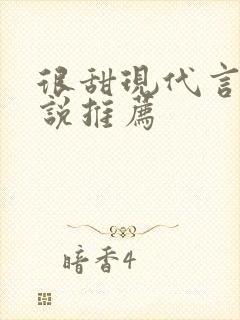 很甜現代言
說推薦
暗香4